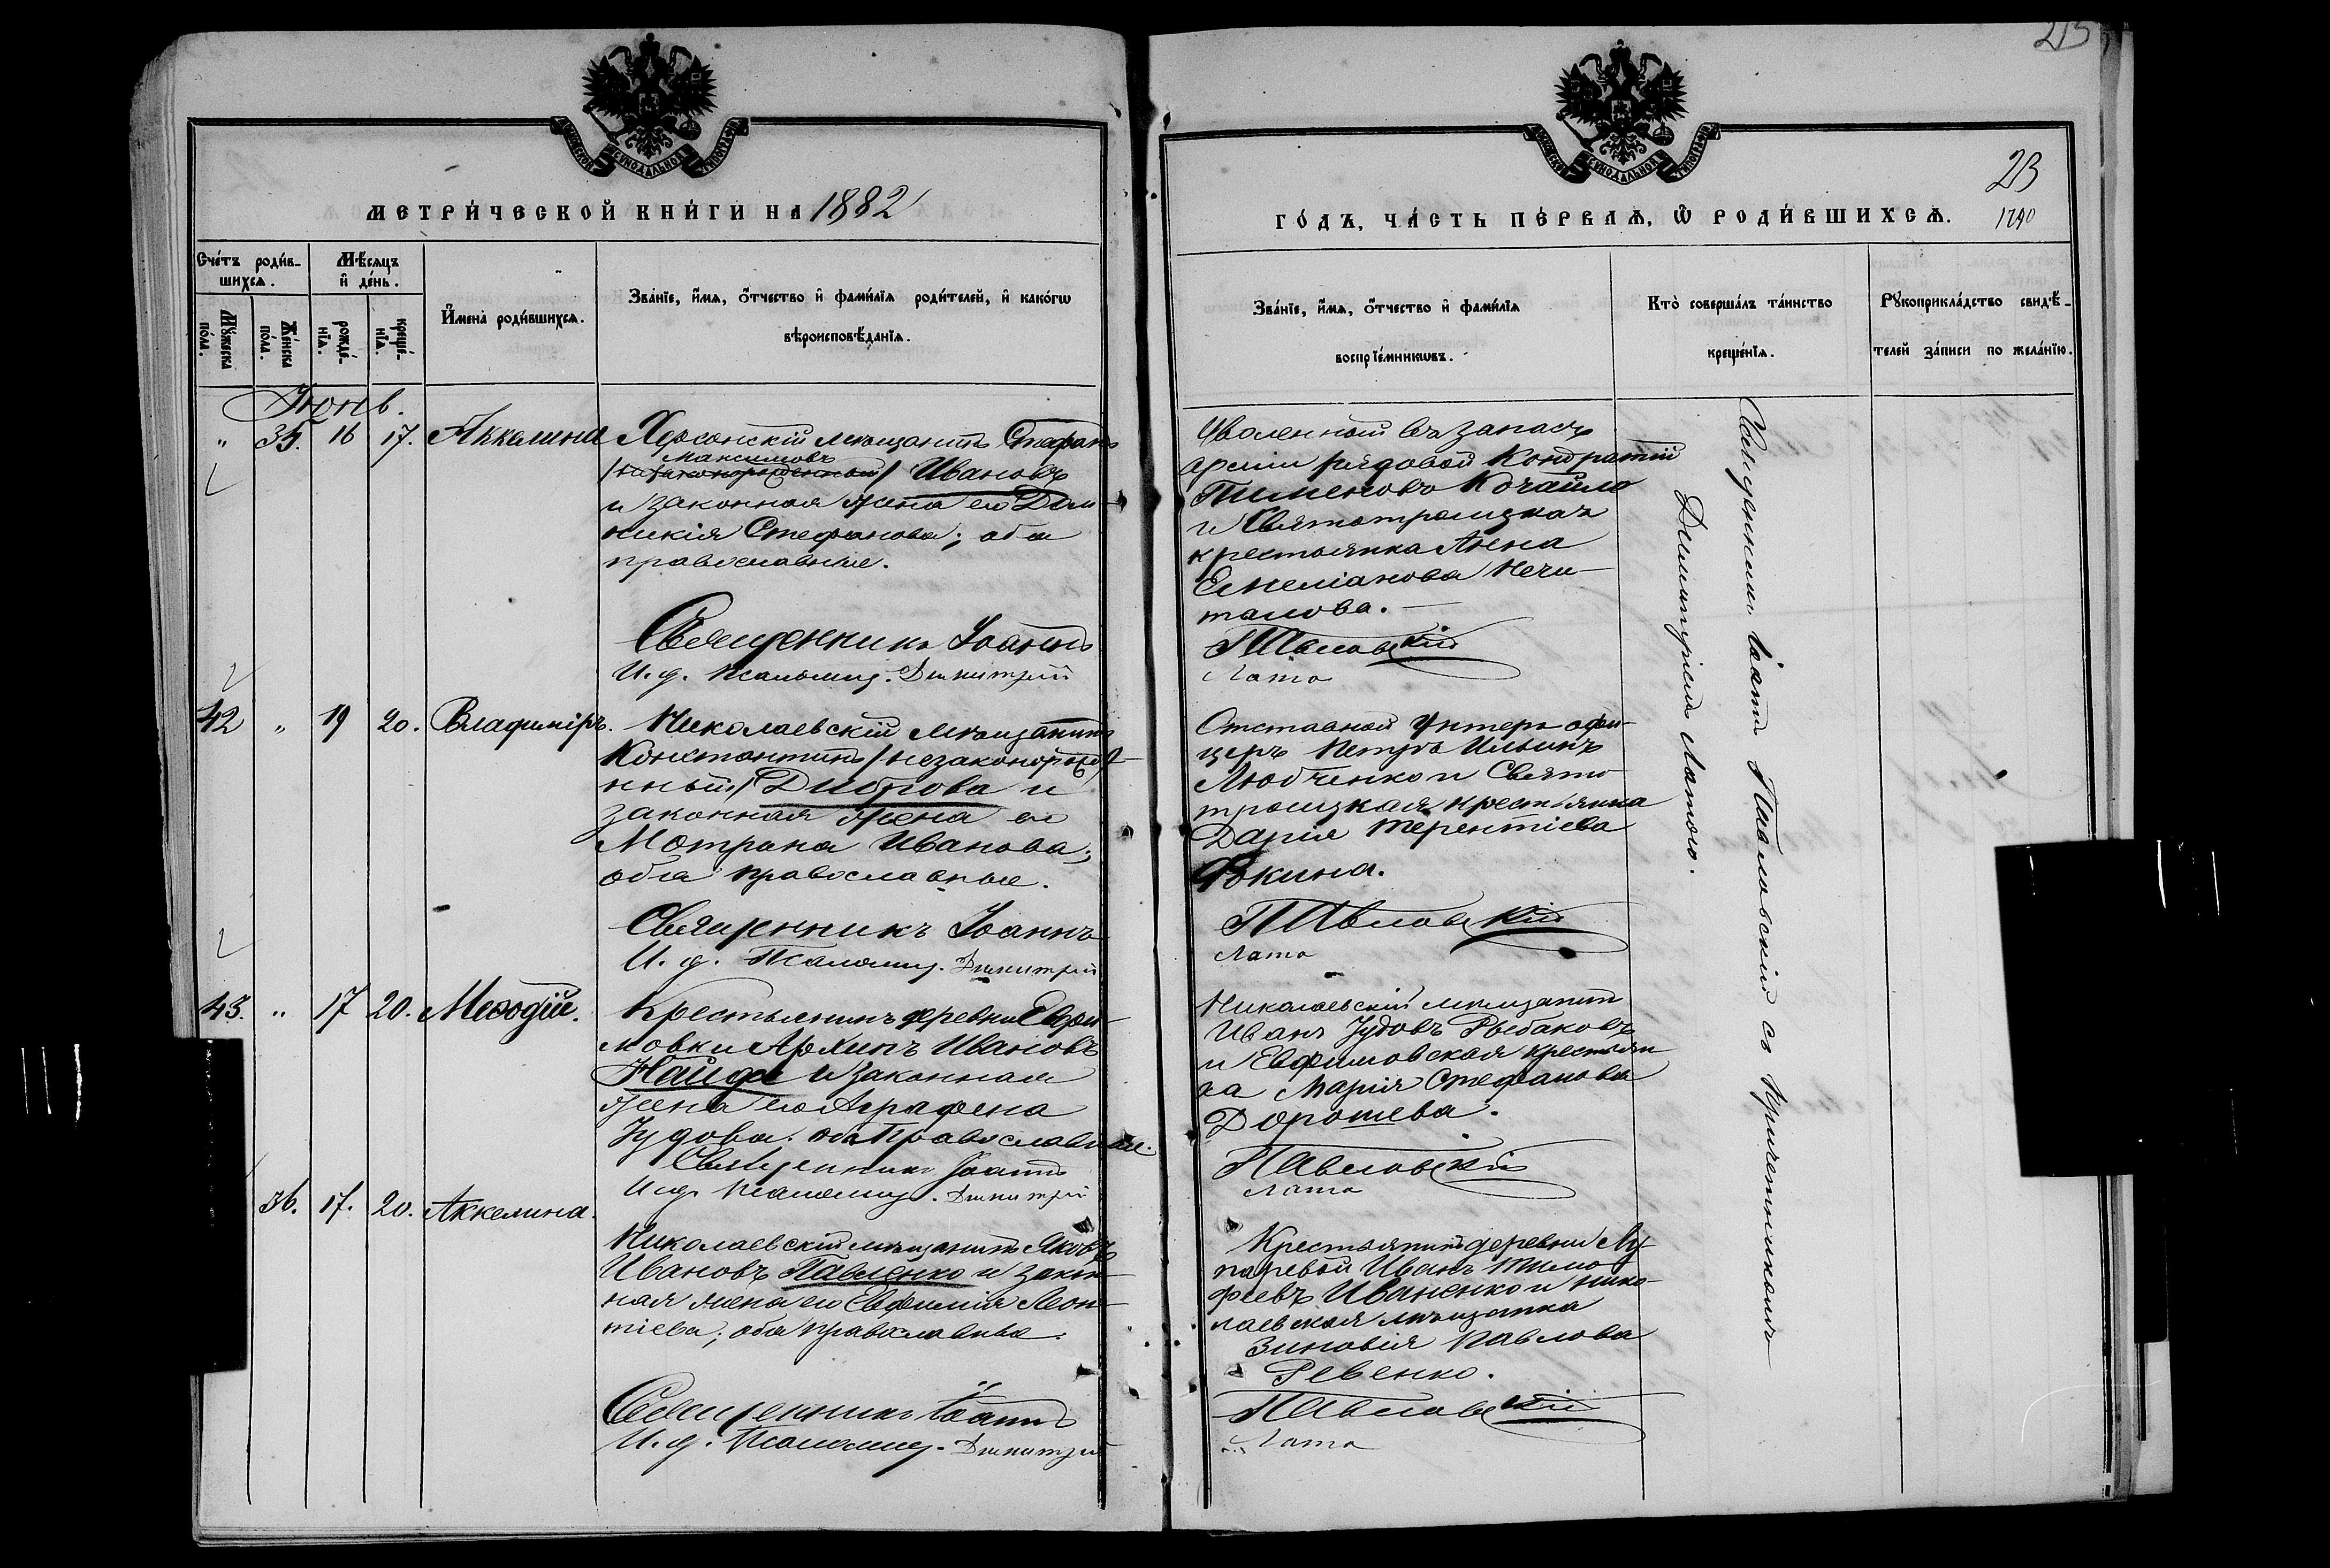 215
МЕТРИ́ЧЕСКОЙ КНИ́ГИ НА 1882
Сче́тъ роди́в-
шихсѧ.
Мѣ́сѧцъ
и҆ де́нь.
Му́жеска
по́ла.
Же́нска
по́ла.
рожде́-
нїѧ.
креще́-
нїѧ.
И҆мена̀ роди́вшихсѧ.
Зва́нїе, и҆́мѧ, ѻ҆́тчество и҆ фами́лїѧ роди́телей, и҆ како́гѡ
вѣроисповѣ́данїѧ.
Іюнь.
" 35. 16 17. Аккелина
Херсонскій мѣщанинъ Стефанъ
Максимовъ
/незаконорожденный/ Ивановъ
и законная жена его Дом-
никія Стефанова; оба
православные.
Священникъ Іоаннъ
И. д. Псаломщ. Димитрій
42 " 19 20. Владиміръ.
Николаевскій мѣщанинъ
Константинъ /незаконорожде-
нный/ Диброва и
законная жена его
Мотрона Иванова;
оба православные.
Священникъ Іоаннъ
И. д. Псаломщ. Димитрій
43. " 17 20. Меѳодій.
Крестьянинъ деревни Евфи-
мовки Архипъ Ивановъ
Найда и законная
жена его Аграфена
Іудова. оба Православные.
Священникъ Іоаннъ
И. д. Псаломщ. Димитрій
36. 17. 20. Аккелина.
Николаевскій мѣщанинъ Яковъ
Ивановъ Павленко и закон-
ная жена его Евфимія Леон-
тіева; оба православные.
Священникъ Іоаннъ
И. д. Псаломщ. Димитрій
23
1790
ГО́ДЪ, ЧА́СТЬ ПЕ́РВАѦ, Ѽ РОДИ́ВШИХСѦ.
Зва́нїе, и҆́мѧ, ѻ҆́тчество и҆ фами́лїѧ
воспрїе́мникѡвъ.
Кто̀ соверша́лъ та́инство
креще́нїѧ.
Рꙋкоприкла́дство свидѣ́-
телей за́писи по жела́нїю.
Уволенный въ запасъ
арміи рядовой Кондратій
Пименовъ Кочайло
и Святотроицкая
крестьянка Анна
Емеліанова Нечи-
таилова.
Павловскій
Лата
Отставной Унтеръ офи-
церъ Петръ Ильинъ
Любченко и Свято-
троицкая крестьянка
Дарія Терентіева
Фокина.
Павловскій
Лата
Николаевскій мѣщанинъ
Иванъ Іудовъ Рыбаковъ
и Евфимовская крестьян-
ка Марія Стефанова
Дорошева.
Павловскій
Лата
Крестьянинъ деревни Лу-
паревой Иванъ Тимо-
феевъ Иваненко и нико-
лаевская мѣщанка
Зиновія Павлова
Ревенко.
Павловскій
Лата
Священникъ Іоаннъ Павловскій съ Причетникомъ
Димитріемъ Латою.